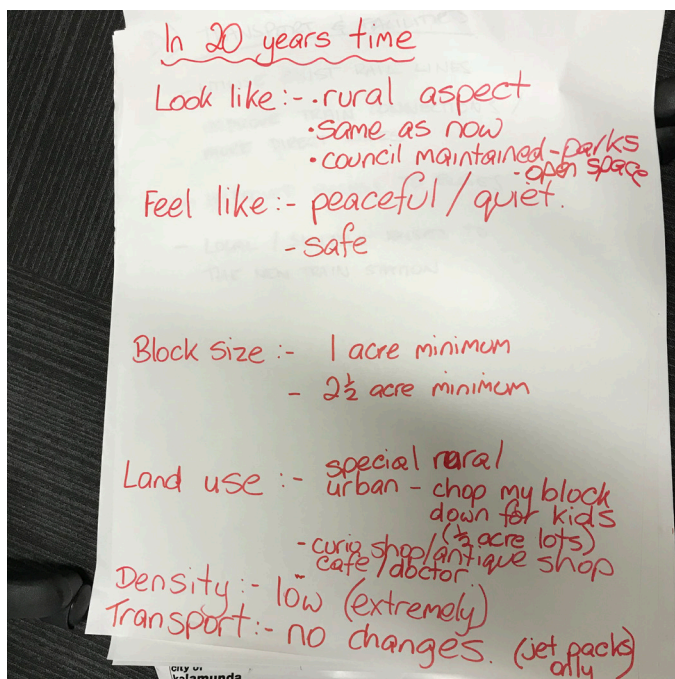 In 20 years time
Look like :- . rural aspect
• same as now
• council maintained - parks
- open space
Feel like :- peaceful / quiet.
- safe
Block size :- 1 acre minimum
- 2½ acre minimum
Land use :- special rural
urban - chop my block
down for kids
(½ acre lots)
- curio shop/antique shop
cafe / doctor
Density :- low (extremely)
Transport :- no changes. (jet packs
only
city of
kalamunda